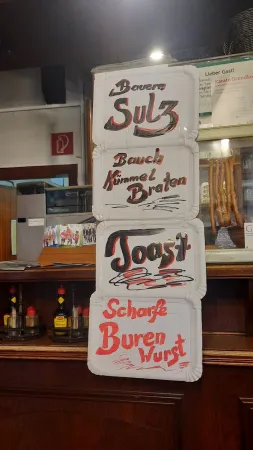 Bauern
Sulz
Bauch
Kümmel
Braten
Toast
Scharfe
Buren
Wurst
Lieber Gast!